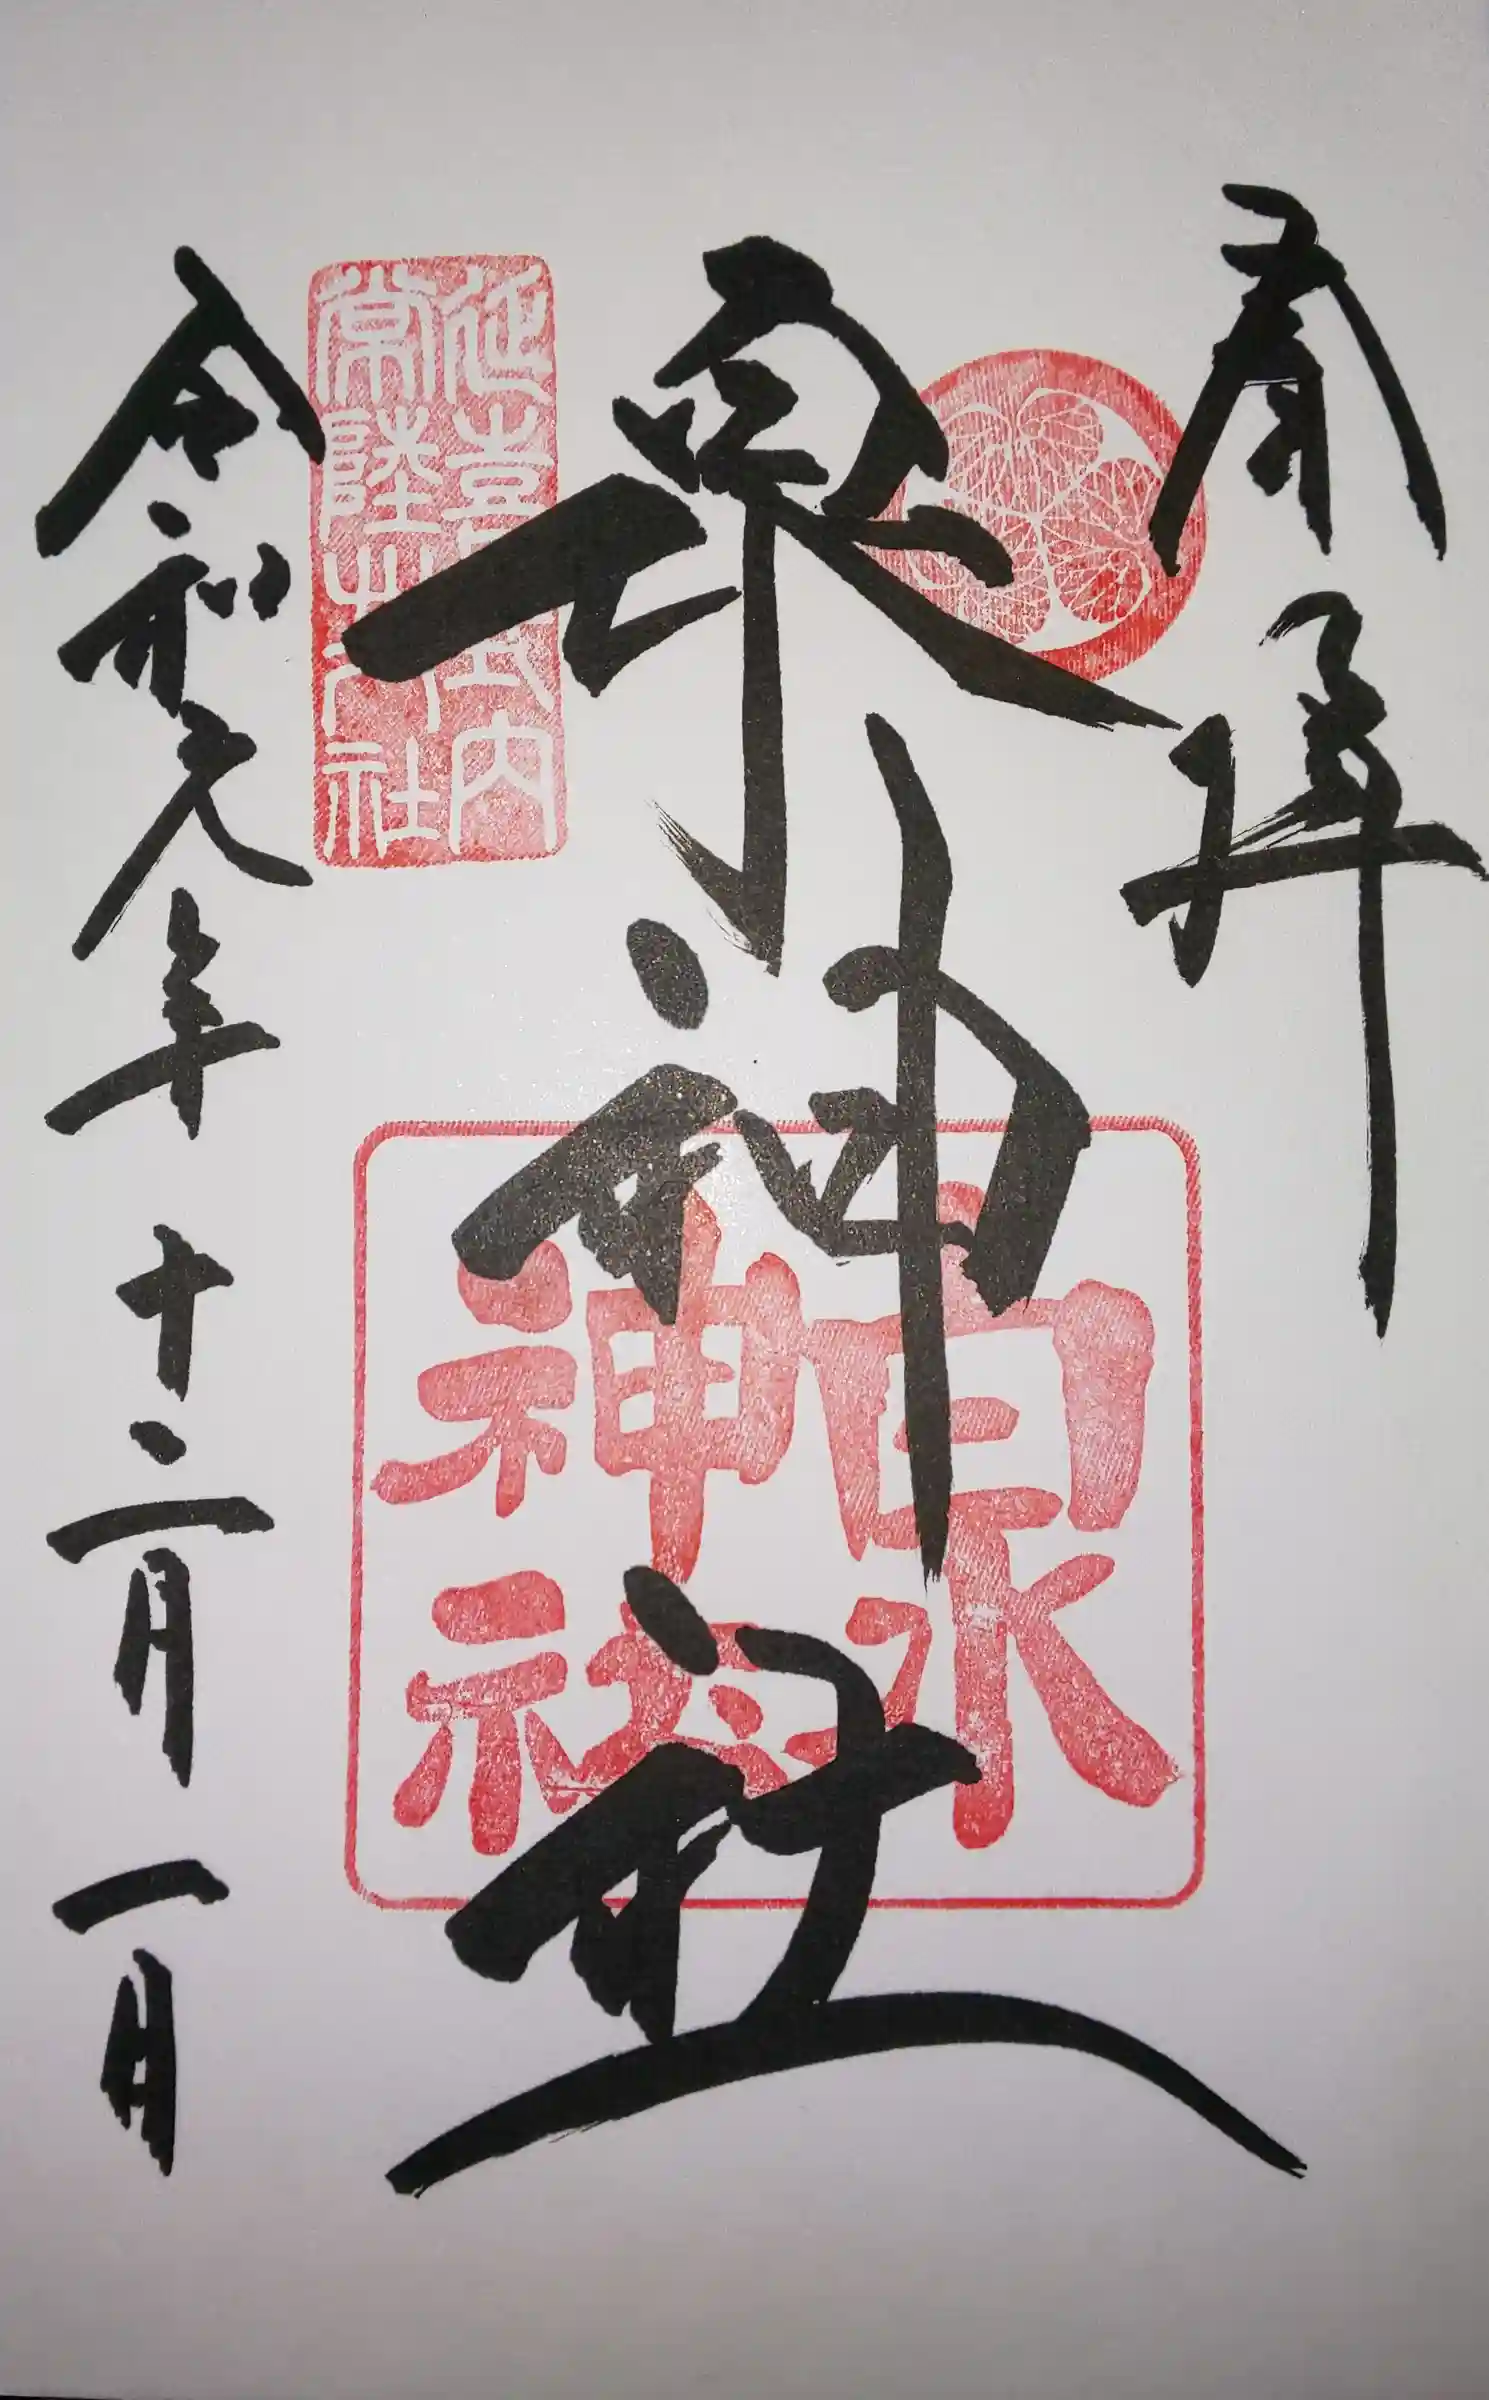 奉拝
泉神社
延喜式内
常陸二十八社
泉神社
令和元年十二月一日